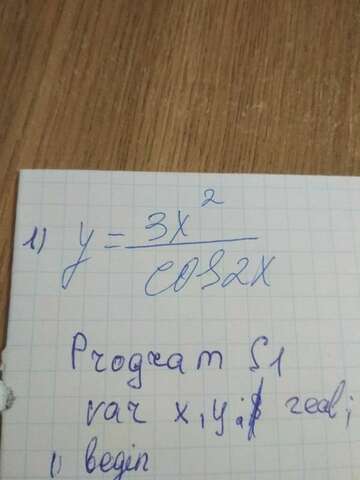 1) y = 3x²
cos2x
Program S1
var x, y: real;
1) begin